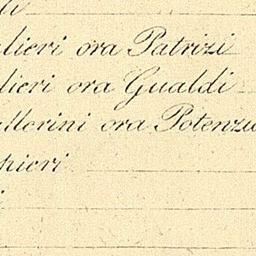 lieri ora Patrizi
lieri ora Gualdi
llerini ora Potenzi
hieri